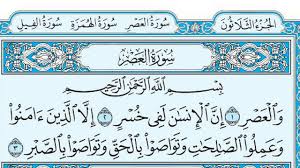 الجُزءُ الثَّلَاثُونَ سُورَةُ العَصْرِ سُورَةُ الهُمَزَةِ سُورَةُ الفِيلِ
سُورَةُ العَصْرِ
بِسْمِ اللَّهِ الرَّحْمَٰنِ الرَّحِيمِ
وَالْعَصْرِ ۝١ إِنَّ الْإِنسَٰنَ لَفِي خُسْرٍ ۝٢ إِلَّا الَّذِينَ ءَامَنُوا
وَعَمِلُوا الصَّٰلِحَٰتِ وَتَوَاصَوْا بِالْحَقِّ وَتَوَاصَوْا بِالصَّبْرِ ۝٣